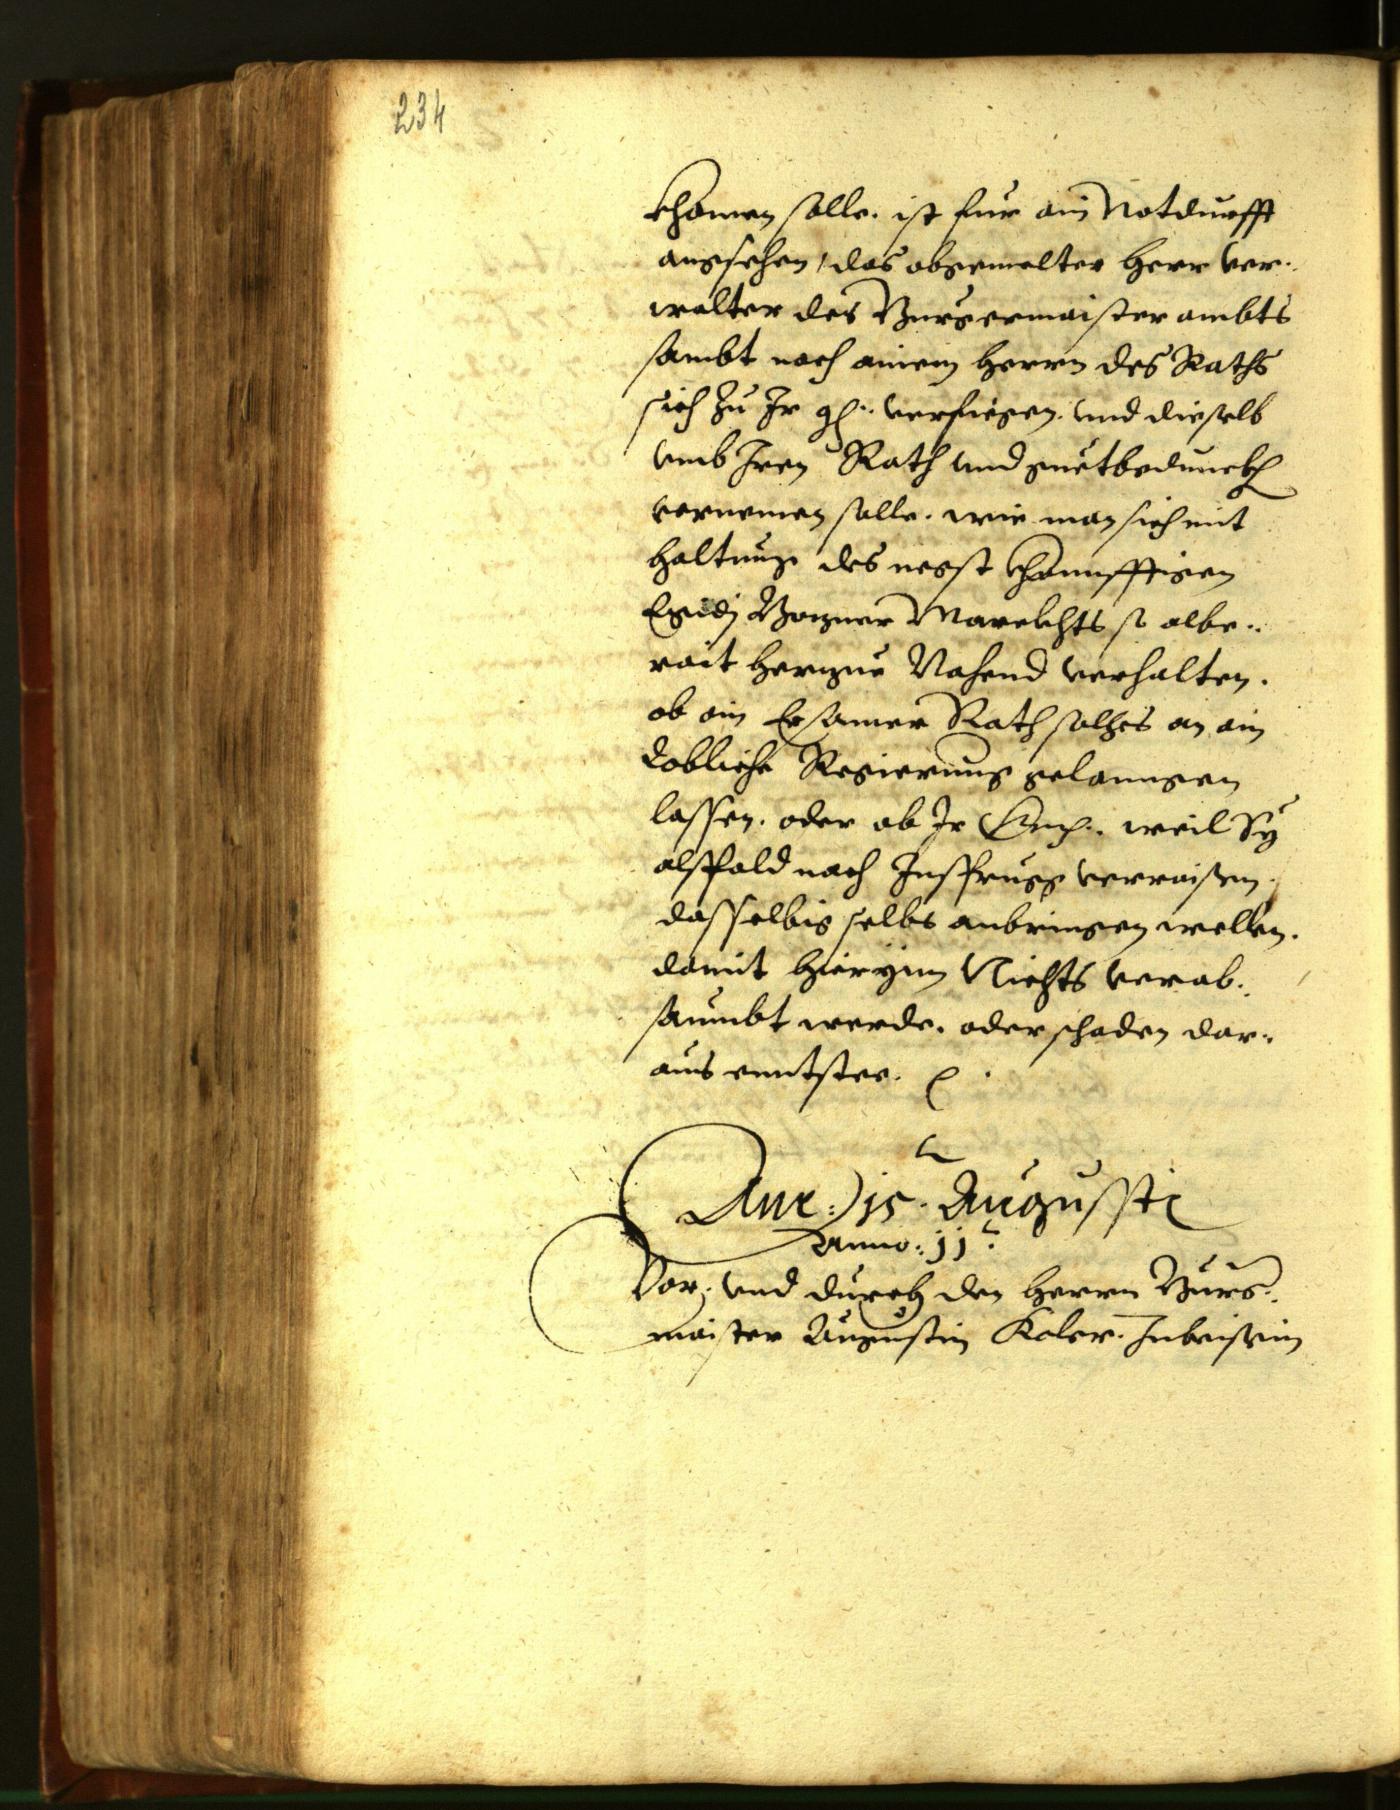 234
khomen solle. ist fur ain Notdurfft
angesehen, das obgemelter herr Ver-
walter des Burgermaister ambts
sambt noch ainem herrn des Raths
sich zu Ir gl: verfiegen. und dieselb
umb Iren Rath und guetbedunckh
vernemen solle. wie man sich mit
haltung des negst khonnfftigen
Egidj Bozner Marckhts so albe-
rait herzue Nahend verhalten.
ob ain Ersamer Rath solches an ain
Lobliche Regierung gelanngen
lassen. oder ob Ir weil Sy
alspald nach Insprugg verraisen
dasselbig selbs anbringen wellen.
damit hierynn Nichts verab-
saumbt werde. oder schaden dar-
aus enntstee.
Adj 15. Augustj
Anno: 11
Vor: und durch den herrn Burg-
maister Augustin Koler. Inbeisein